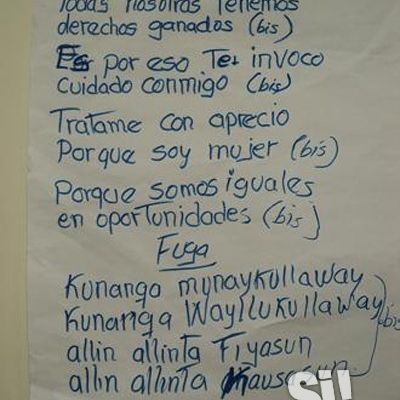 Todas nosotras Tenemos
derechos ganados (bis)
Es por eso Te invoco
cuidado conmigo (bis)
Tratame con aprecio
Porque soy mujer (bis)
Porque somos iguales
en oportunidades (bis)
Fuga
Kunango munaykullaway
Kunanga Wayllukullaway
allin allinta Tiyasun
allin allinta Kausasun
bis
Si!